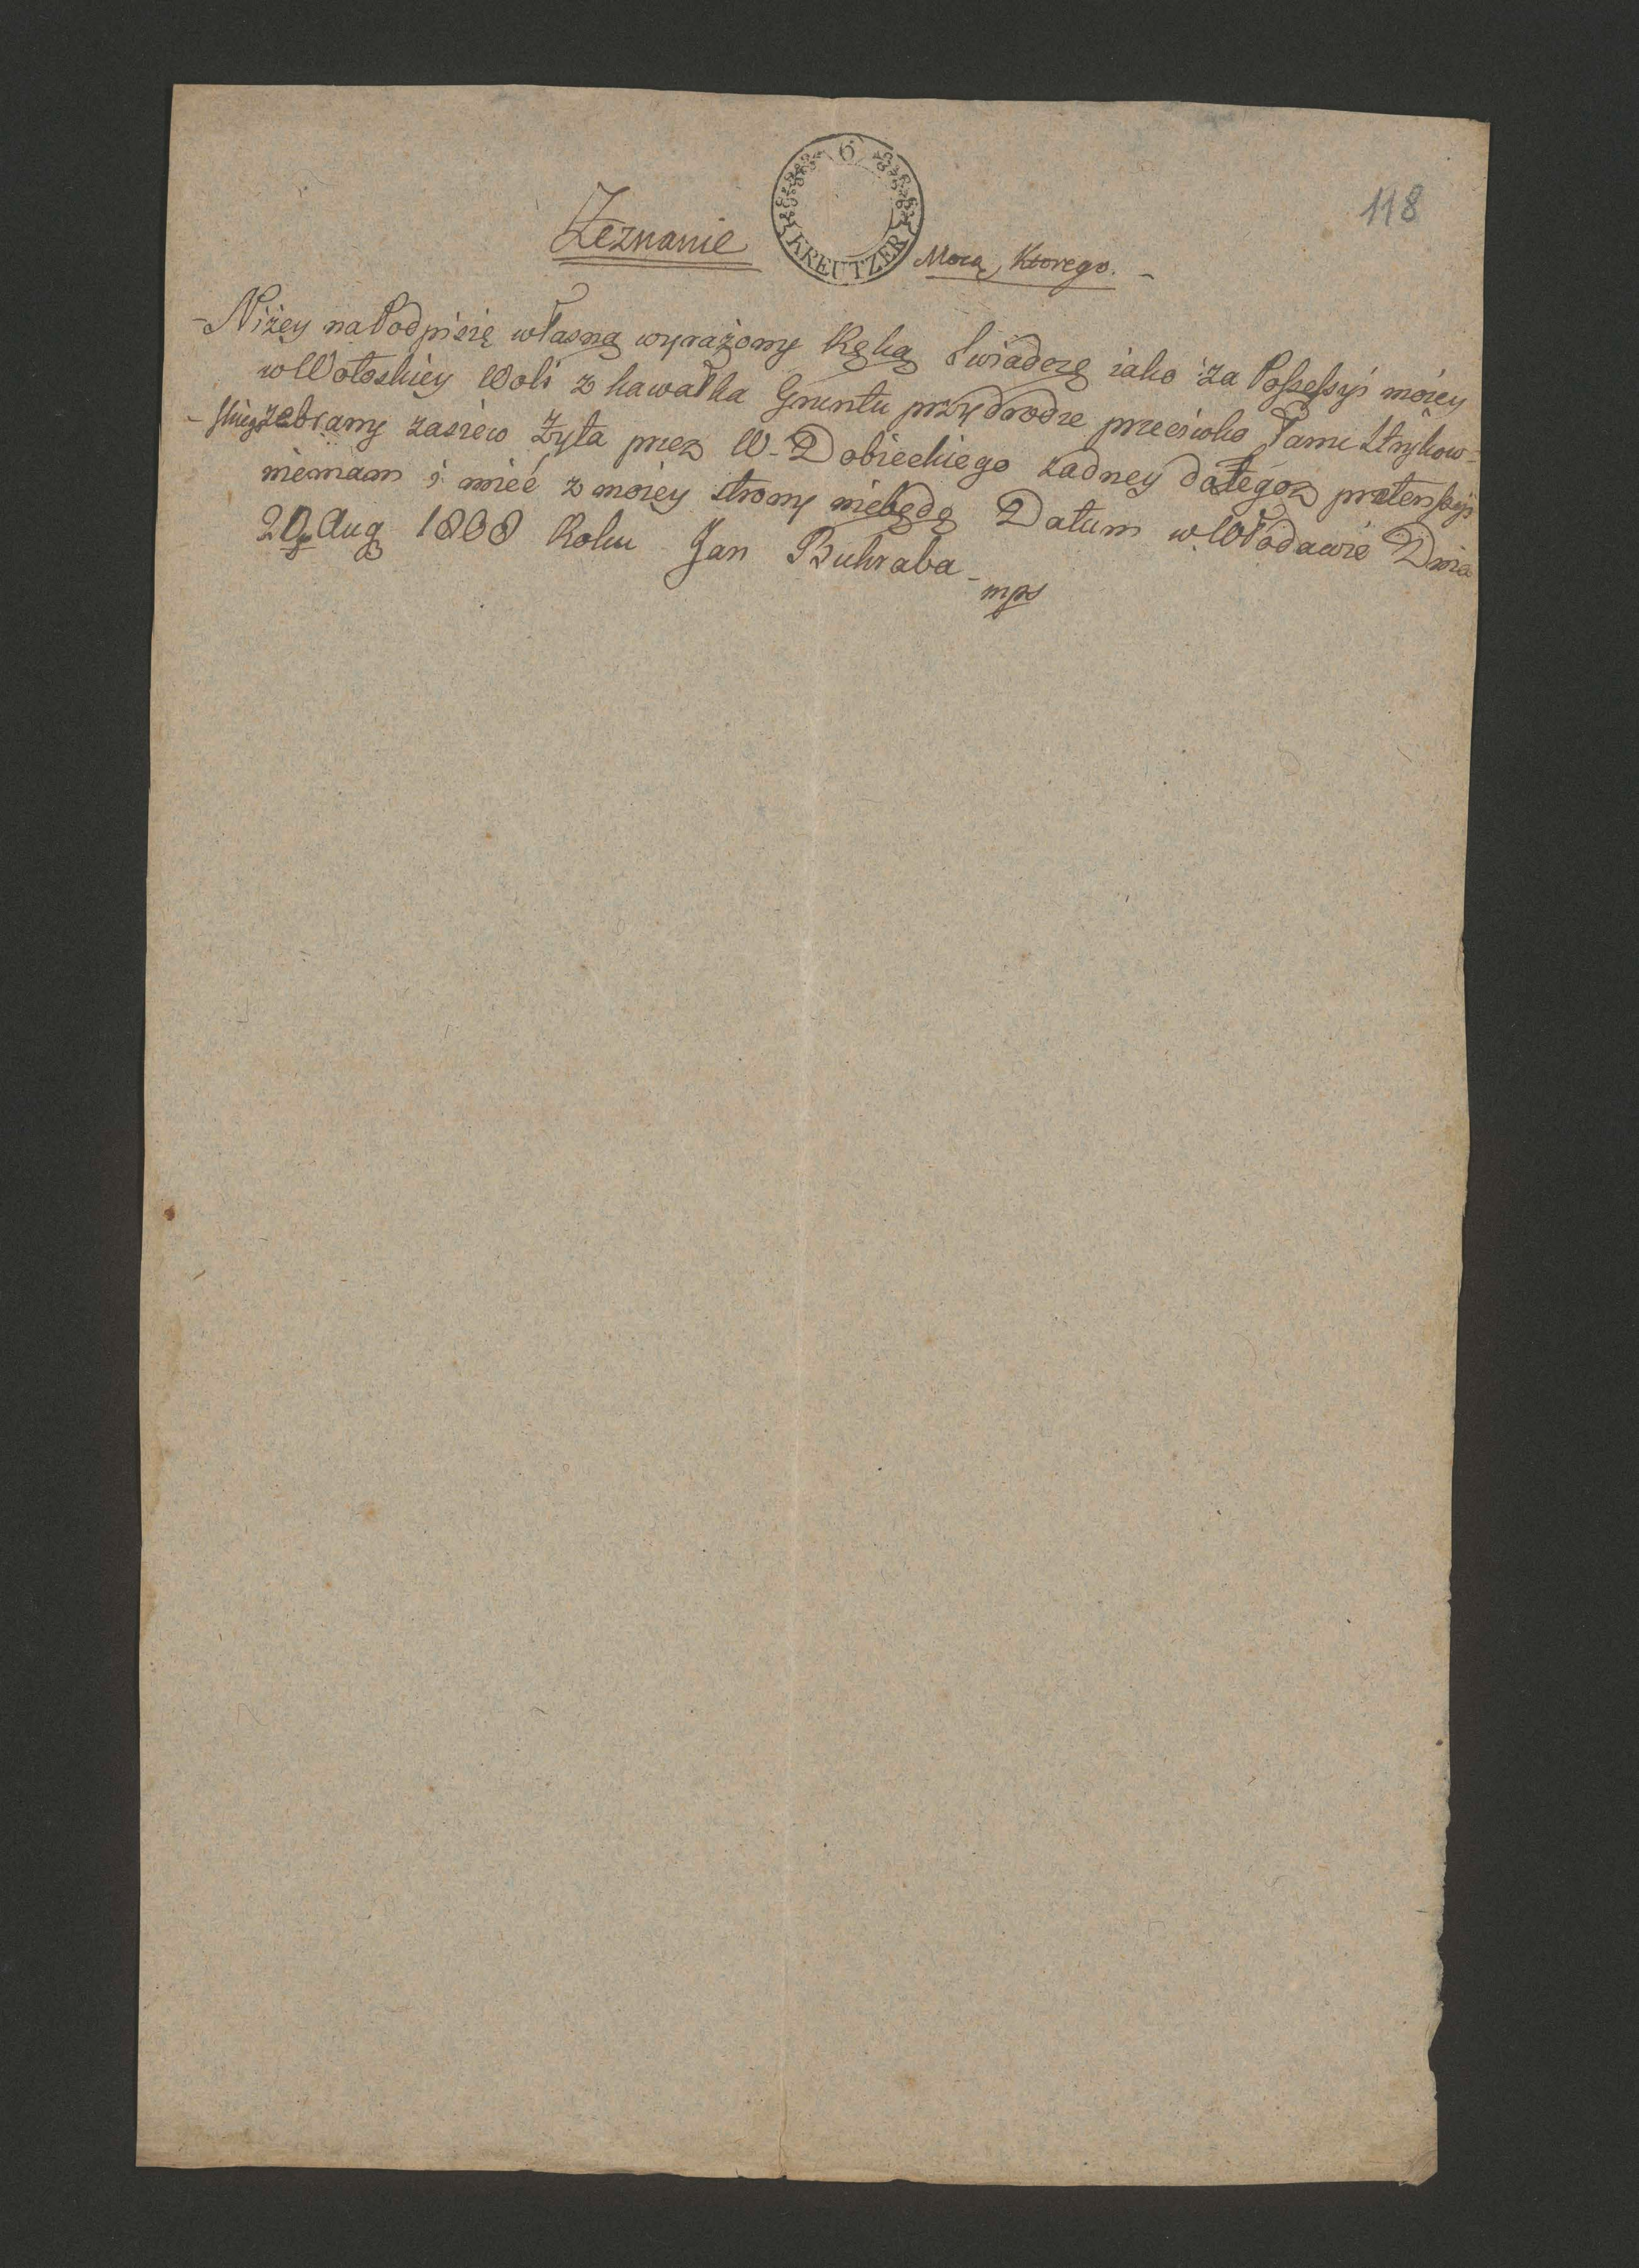 118
6
KREUTZER
Zeznanie Mocą, Ktorego. -
- Niżey na Podpisię własną wyrażony Ręką Swiadczę iako za Possessyi moiey
w Wołoskiey Woli z kawałka Gruntu przydrodze przeciwko Pani Strykow=
- skiey zebrany zasiew Żyta przez W. Dobieckiego żadney do tegoz pretensyi
niemam i mieć z moiey strony niebędę Datum w Włodawie Dnia
Aug 1808 Roku Jan Bukraba -
mps